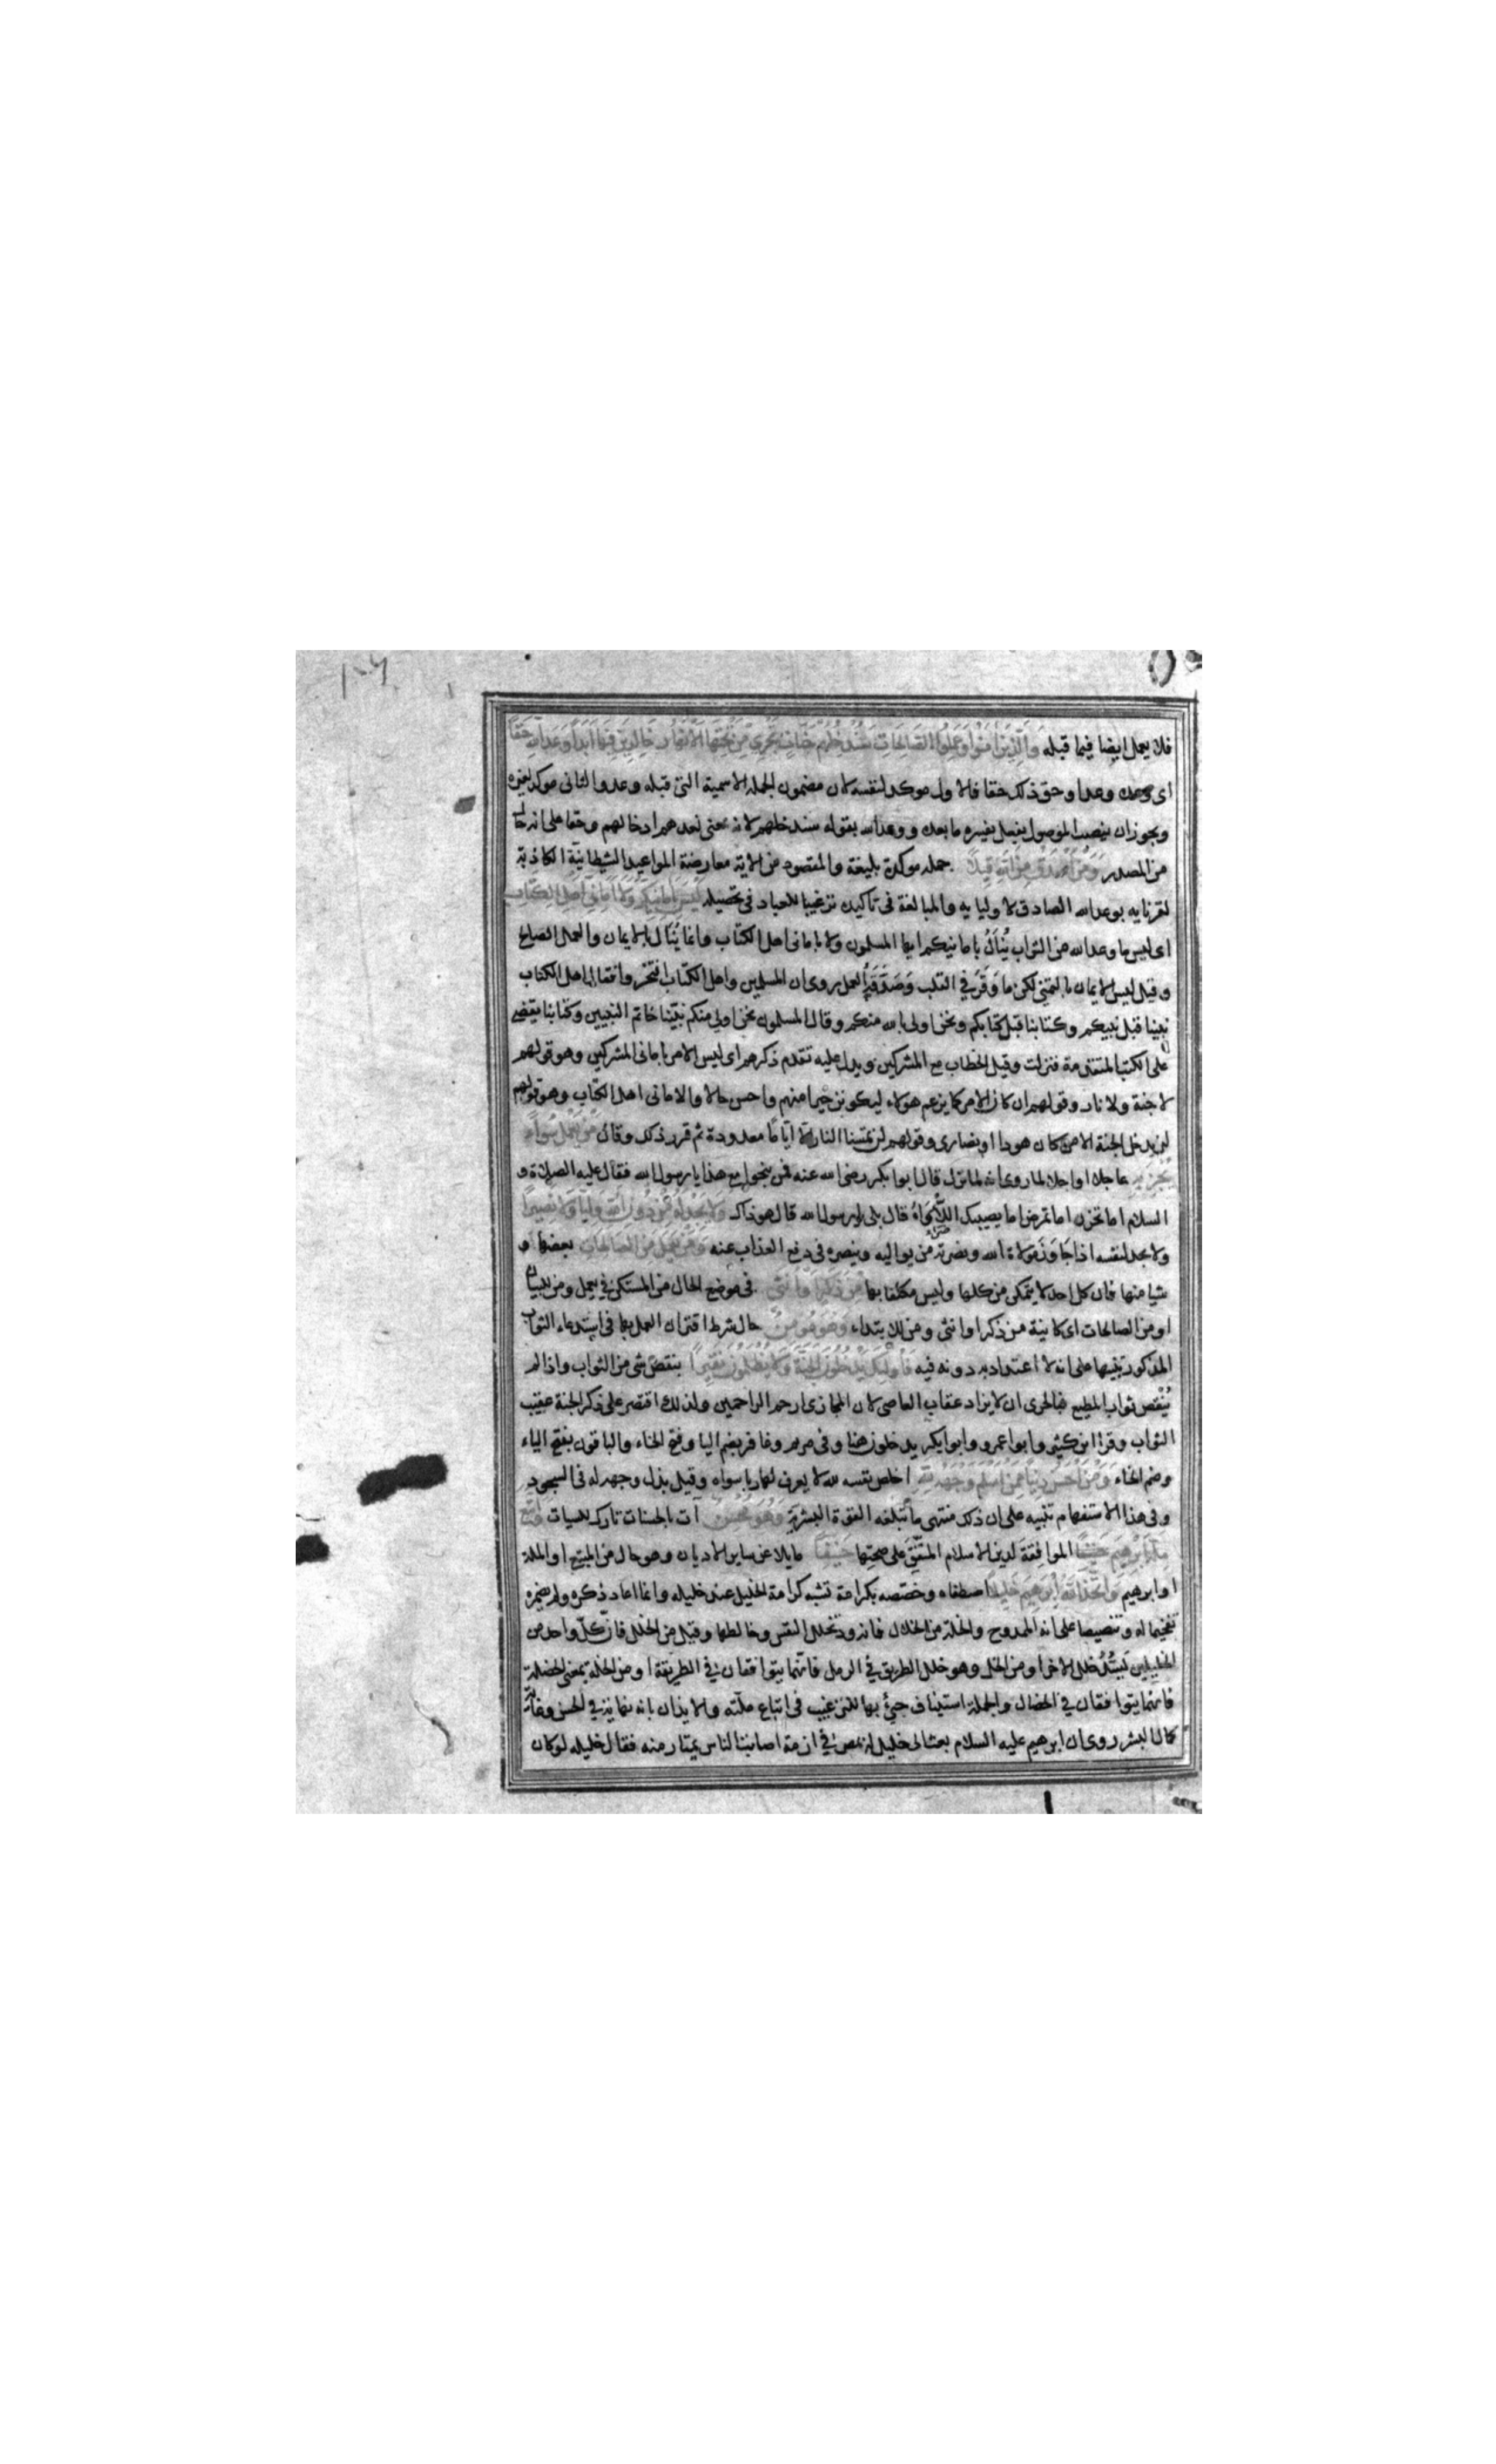 فلا يعمل ايضا فيما قبله وَالَّذِينَ آمَنُوا وَعَمِلُوا الصَّالِحَاتِ سَنُدْخِلُهُمْ جَنَّاتٍ تَجْرِي مِنْ تَحْتِهَا الْأَنْهَارُ خَالِدِينَ فِيهَا أَبَدًا وَعْدَ اللَّهِ حَقًّا
اى وعده وعدا وحق ذلك حقا فالاول موكد لنفسه لان مضمون الجملة الاسمية التى قبله وعد والثانى موكد لغيره
ويجوز ان ينصب الموصول بفعل يفسره ما بعده ووعد الله بقوله سندخلهم لانه بمعنى نعدهم ادخالهم وحقا على انه حال
من المصدر وَمَنْ أَصْدَقُ مِنَ اللَّهِ قِيلًا جملة موكدة بليغة والمقصود من الاية معارضة المواعيد الشيطانية الكاذبة
لقرنايه بوعد الله الصادق لاوليايه والمبالغة فى تاكيده ترغيبا للعباد فى تحصيله لَيْسَ بِأَمَانِيِّكُمْ وَلَا أَمَانِيِّ أَهْلِ الْكِتَابِ
اى ليس ما وعد الله من الثواب يُنَالُ بامانيكم ايها المسلمون ولا بامانى اهل الكتاب وانما يُنَال بالايمان والعمل الصالح
وقيل ليس الايمان بالتمنى لكن ما وَقَرَ في القلب وَصَدَّقَهُ العمل روى ان المسلمين واهل الكتاب افتخروا فقال اهل الكتاب
نبينا قبل نبيكم وكتابنا قبل كتابكم ونحن اولى بالله منكم وقال المسلمون نحن اولى منكم نبيّنا خاتم النبيين وكتابنا يقضى
على الكتب المتقدمة فنزلت وقيل الخطاب مع المشركين ويدل عليه تقدم ذكرهم اى ليس الامر بامانى المشركين وهو قولهم
لا جنة ولا نار وقولهم ان كان الامر كما يزعم هولاء ليكونن خيرا منهم واحسن حالا ولا امانى اهل الكتاب وهو قولهم
لن يدخل الجنة الا من كان هودا او نصارى وقولهم لن تمسنا النار الا ايّامًا معدودة ثم قرر ذلك وقال مَنْ يَعْمَلْ سُوءًا
يُجْزَ بِهِ عاجلا او اجلا لما روى انه لما نزل قال ابوا بكر رضى الله عنه فمن ينجوا مع هذا يا رسول الله فقال عليه الصلاة و
السلام اما تحزن اما تمرض اما يصيبك اللَّأْوَاءُ قال بلى يا رسول الله قال هو ذاك وَلَا يَجِدْ لَهُ مِنْ دُونِ اللَّهِ وَلِيًّا وَلَا نَصِيرًا
ولا يجد لنفسه اذا جَاوَزَ مولاة الله ونصرته من يواليه وينصره فى دفع العذاب عنه وَمَنْ يَعْمَلْ مِنَ الصَّالِحَاتِ بعضها و
شيا منها فان كل احد لا يتمكن من كلها وليس مكلفا بها مِنْ ذَكَرٍ أَوْ أُنْثَى فى موضع الحال من المستكن في يعمل ومن للبيان
او من الصالحات اى كاينة من ذكر او انثى ومن للابتداء وَهُوَ مُؤْمِنٌ حال شرط اقتران العمل بها فى استدعاء الثواب
المذكور تنبيها على انه لا اعتداد به دونه فيه فَأُولَئِكَ يَدْخُلُونَ الْجَنَّةَ وَلَا يُظْلَمُونَ نَقِيرًا بنقص شى من الثواب واذا لم
يُنْقص ثواب المطيع فبالحرى ان لا يزاد عقاب العاصى لان المجازى ارحم الراحمين ولذلك اقتصر على ذكر الجنة عقيب
الثواب وقرا ابن كثير وابوا عمرو وابوا بكر يدخلون هنا وفى مريم وغافر بضم اليا وفتح الخاء والباقون بفتح الياء
وضم الخاء وَمَنْ أَحْسَنُ دِينًا مِمَّنْ أَسْلَمَ وَجْهَهُ لِلَّهِ اخلص نفسه لله لا يعرف لها ربا سواه وقيل بذل وجهه له فى السجود
وفى هذا الاستفهام تنبيه على ان ذلك منتهى ما تبلغه القوة البشرية وَهُوَ مُحْسِنٌ آت بالحسنات تارك للسيات وَاتَّبَعَ
مِلَّةَ إِبْرَاهِيمَ حَنِيفًا الموافقة لدين الاسلام المتّفق على صحتها حَنِيفًا مايلا عن ساير الاديان وهو حال من المتبع او الملة
او ابرهيم وَاتَّخَذَ اللَّهُ إِبْرَاهِيمَ خَلِيلًا اصطفاه وخصّصه بكرامة تشبه كرامة الخليل عند خليله وانما اعاد ذكره ولم يضمره
تفخيما له وتنصيصا على انه الممدوح والخلة من الخلال فانه ود تخلل النفس وخالطها وقيل من الخلل فان كلّ واحد من
الخليلين يَسُدُّ خلل الاخر او من الخل وهو خلل الطريق في الرمل فانّهما يتوافقان في الطريقة او من الخلة بمعنى الخصلة
فانهما يتوافقان في الخصال والجملة استيناف جئ بها للترغيب فى اتباع ملّته والايذان بانه نهاية في الحسن وغاية
كمال البشر روى ان ابرهيم عليه السلام بعث الى خليل له بمصر في ازمة اصابت الناس يمتار منه فقال خليله لو كان